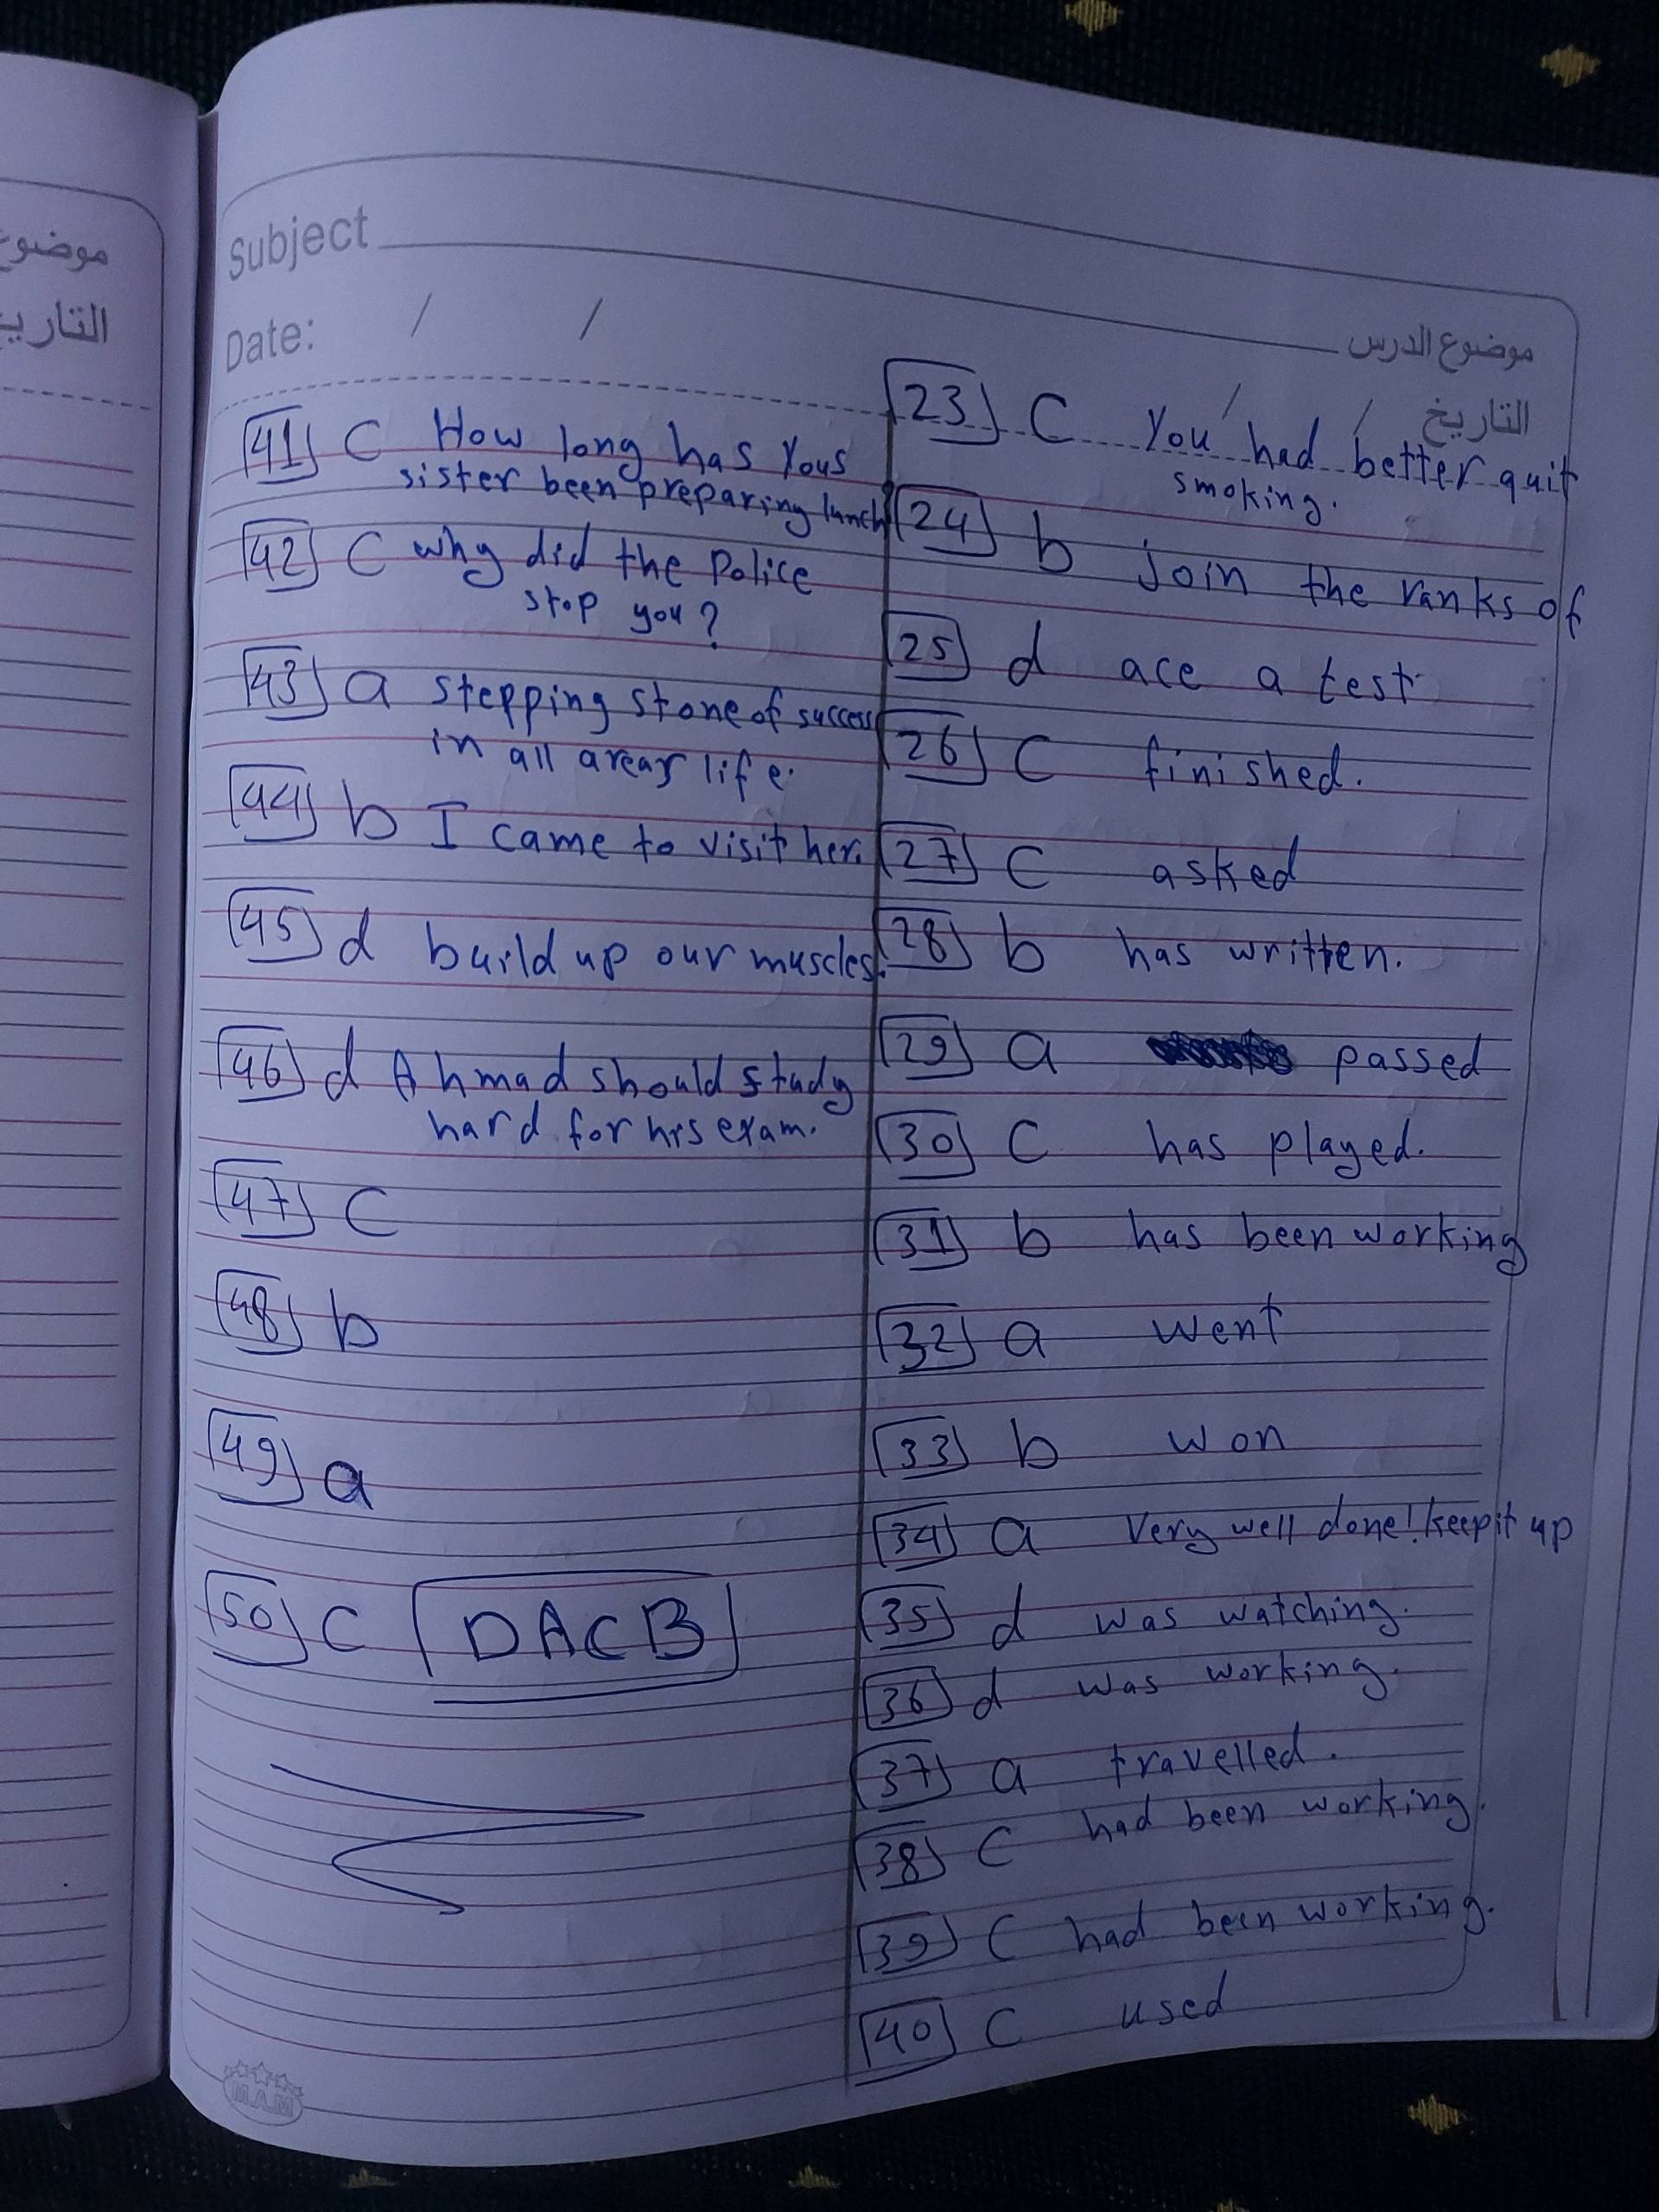 موضوع
التاريخ
Subject
موضوع الدرس
Date: / /
/ / التاريخ
41 C How long has Yous
sister been preparing lunch
42 C why did the Police
stop you?
43 a stepping stone of success
in all areas life.
44 b I came to visit her.
45 d build up our muscles.
46 d Ahmad should study
hard for his exam.
47 C
48 b
49 a
50 C DACB
23 C You had better quit
smoking.
24 b join the ranks of
25 d ace a test
26 C finished.
27 C asked
28 b has written.
29 a passed
30 C has played.
31 b has been working
32 a went
33 b won
34 a Very well done! keep it up
35 d was watching.
36 d was working.
37 a travelled.
38 C had been working.
39 C had been working.
40 C used
M.A.M